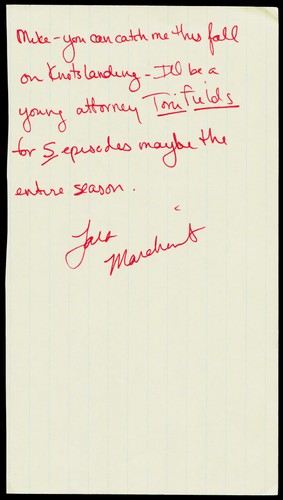 Mike - you can catch me this fall
on Knotslanding - I'll be a
young attorney Toni Fields
for 5 episodes maybe the
entire season.
Marchant